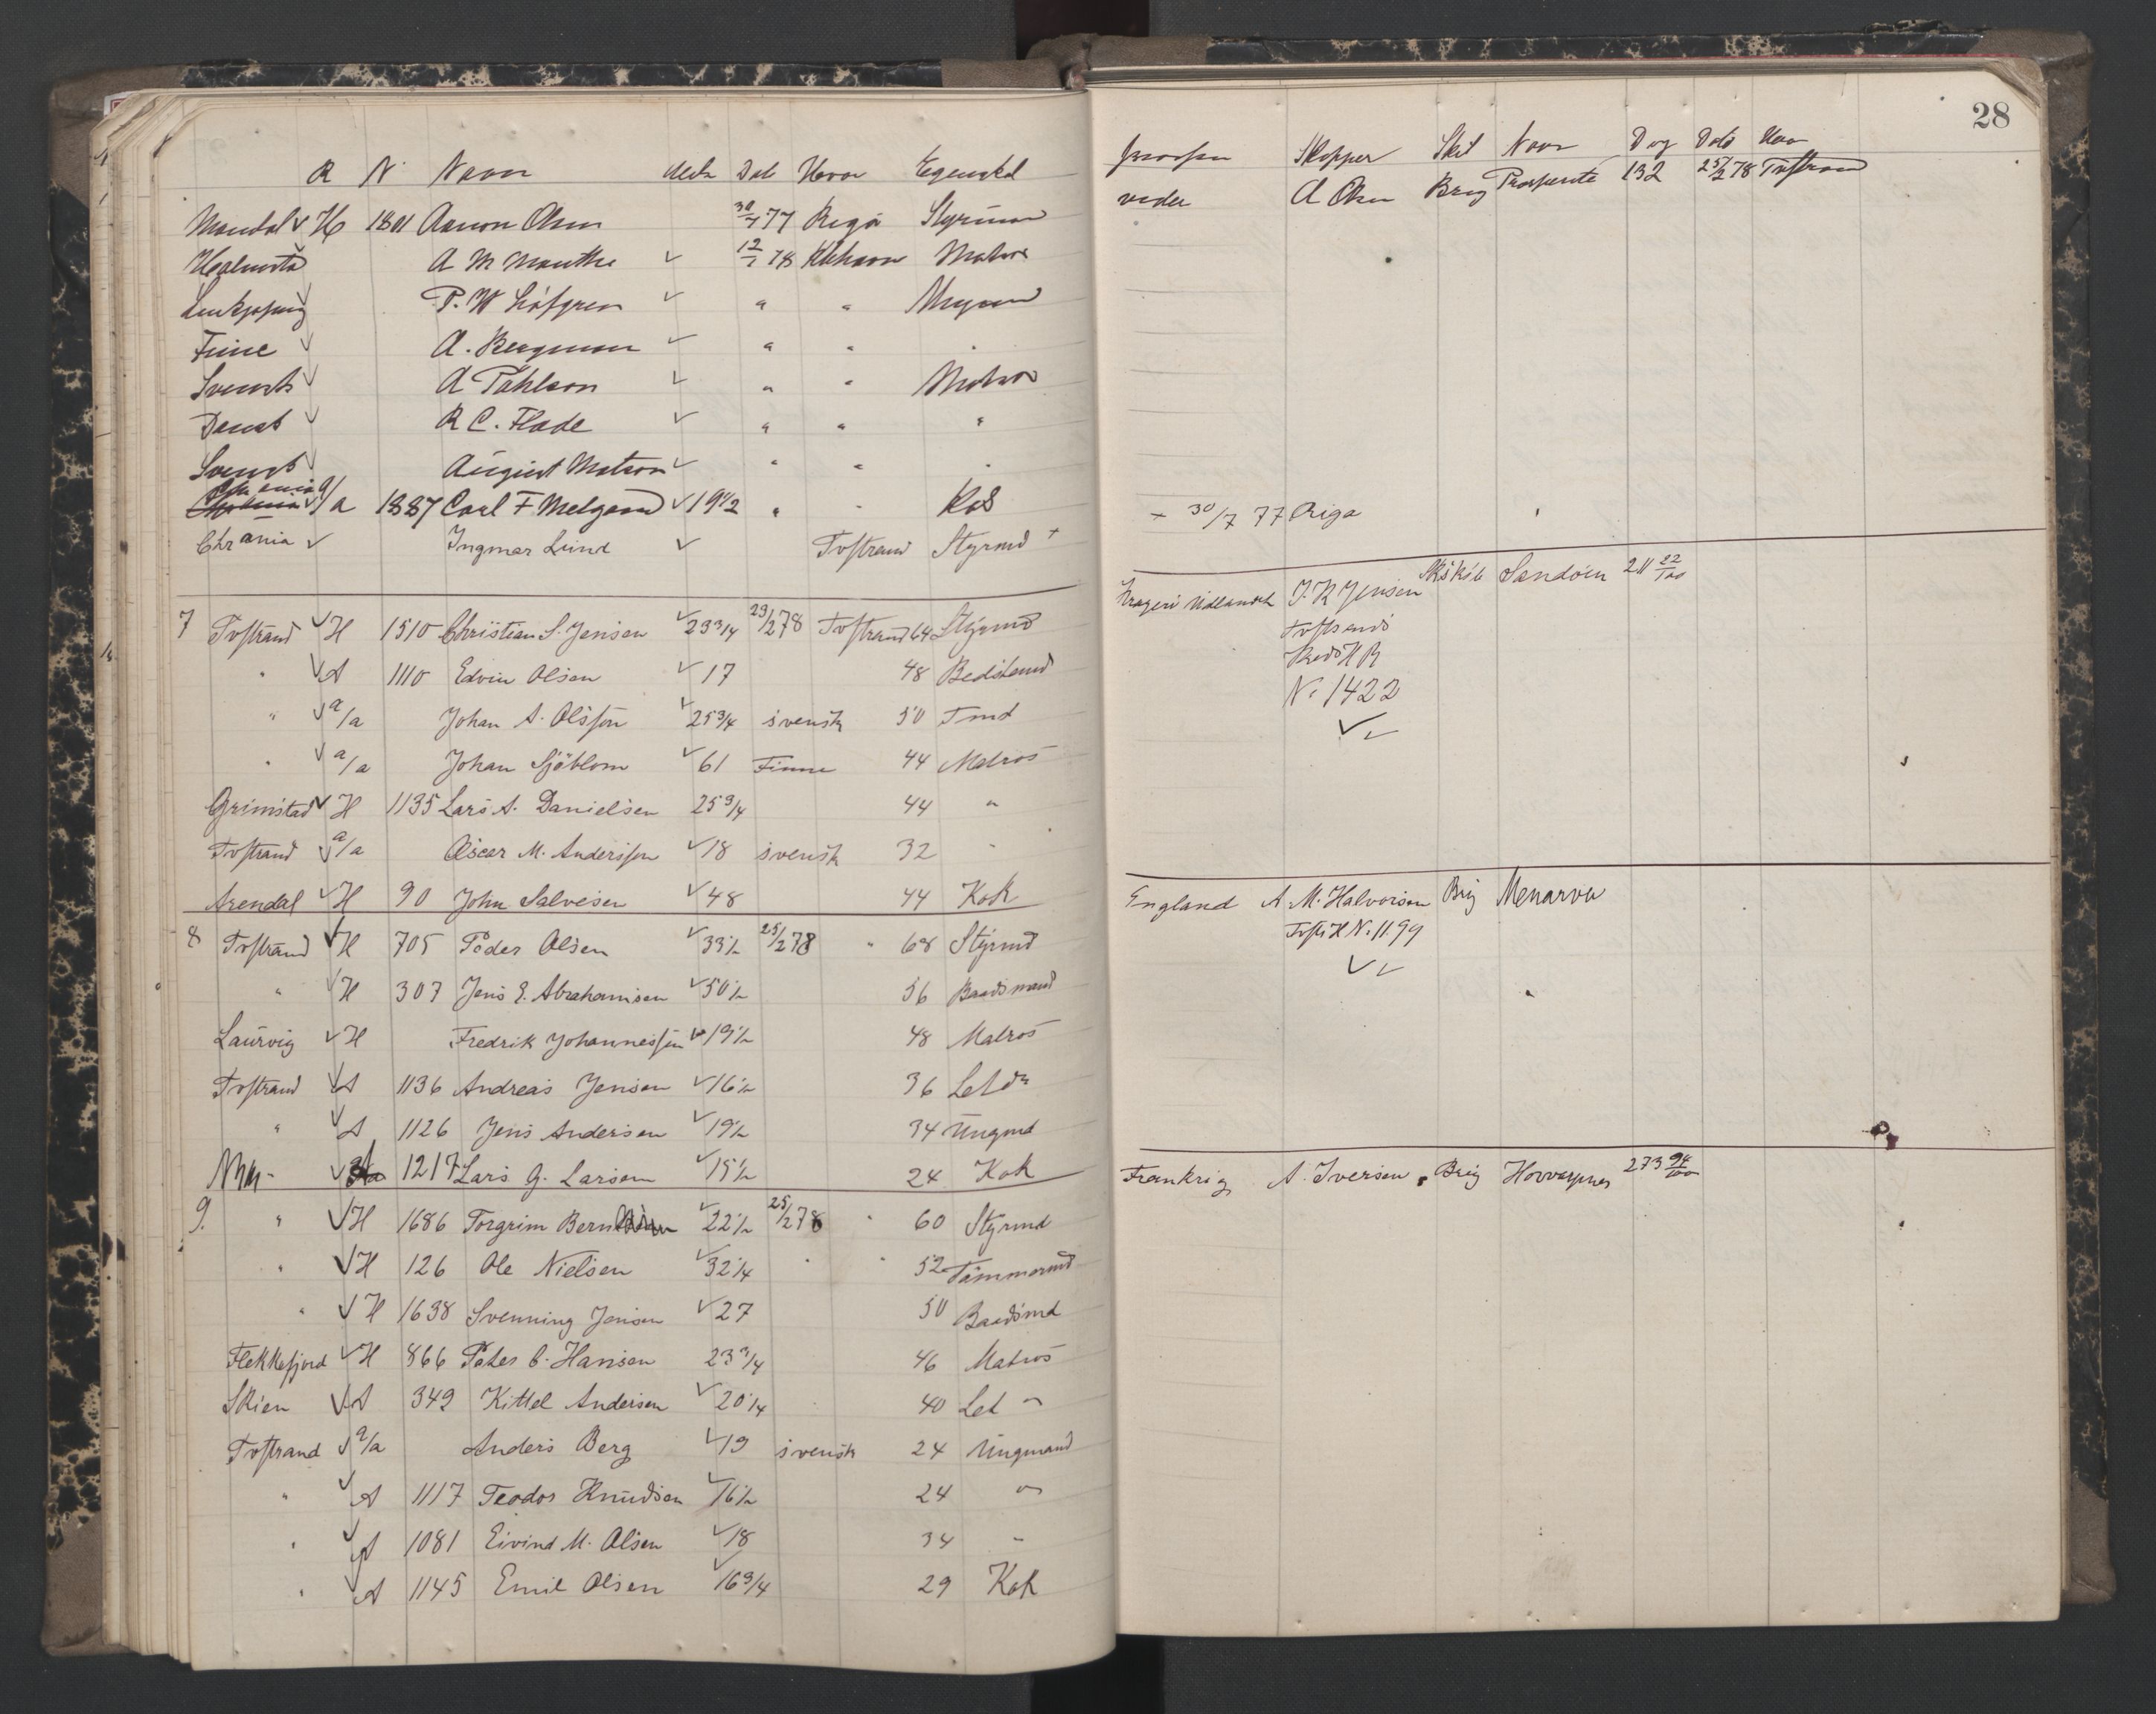 R N Navn Dat Hvor Egenskd
Mandal √ H 1801 Aanon Olsen 30/7 77 Riga Styrman
Halmsta A M Manthe √ 12/1 78 Kbhavn Matros
Linkjøping P. W Løfgren √ " " Ungman
Finne √ A. Bergman √ " " "
Svensk √ A Pahlson √ " " Matros
Dansk √ R C. Flade √ " " "
Svensk √ August Matson √ " " "
√ a/a 1887 Carl F Melgaard √ 19 1/2 " " Kok
Chrania √ Ingmar Lund √ Tvstrand Styrmd +
7 Tvstrand √ H 1510 Christian S. Jensen √ 23 3/4 23/2 78 Tvstrand 64 Styrmd
" √ A 1110 Edvin Olsen √ 17 48 Bedstemd
" √ a/a Johan A. Olsson √ 25 3/4 svensk 50 Tmd
" √ a/a Johan Sjöblom √ 61 Finne 44 Matros
Grimstad √ H 1135 Lars A. Danielsen 25 3/4 44 "
Tvstrand √ a/a Oscar M. Andersson √ 18 svensk 32 "
Arendal √ H 90 John Salvesen √ 48 44 Kok
8 Tvstrand √ H 705 Peder Olsen √ 33 1/2 25/2 78 " 68 Styrmd
" √ H 307 Jens E. Abrahamsen √ 50 1/2 56 Baadsmand
Laurvig √ H Fredrik Johannessen √ 19 1/2 48 Matros
Tvstrand √ A 1136 Andreas Jensen √ 16 1/2 36 Let do
" √ A 1126 Jens Andersen √ 19 1/2 34 Ungmd
√ A 1217 Lars G. Larsen √ 15 1/2 24 Kok
9. " √ H 1686 Torgrim √ 22 1/2 25/2 78 " 60 Styrmd
" √ H 126 Ole Nielsen √ 32 1/4 " " 52 Tømmermd
" √ H 1638 Svenning Jensen √ 27 50 Baadsmd
Flekkefjord √ H 866 Peter C. Hansen 23 3/4 46 Matros
Skien √ A 349 Kittel Andersen √ 20 1/4 40 Let "
Tvstrand √ a/a Anders Berg √ 19 svensk 24 Ungmand
" √ A 1117 Teodor Knudsen √ 16 1/2 24 "
" √ A 1081 Eivind M. Olsen √ 18 34 "
" √ A 1145 Emil Olsen √ 16 3/4 29 Kok
28
Skipper Skib Navn Drg Dato Hvor
A Olsen Brig 132 25/2 78 Tvstrand
+ 30/7 77 Riga
Kragerø Udlandet J. K Jensen Skskib Sandøen 211 22/100
Tvstrand
H R
No 1422
√ √
England A. M. Halvorsen Brig Menarva
Tvst. H No. 1199
√ √
Frankrig A. Iversen, Brig 273 94/100